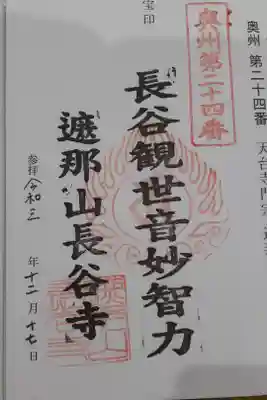 奥州 第二十四番
奥州第二十四番
長谷観世音妙智力
遮那山長谷寺
宝印
参拝 令和三年十二月十七日